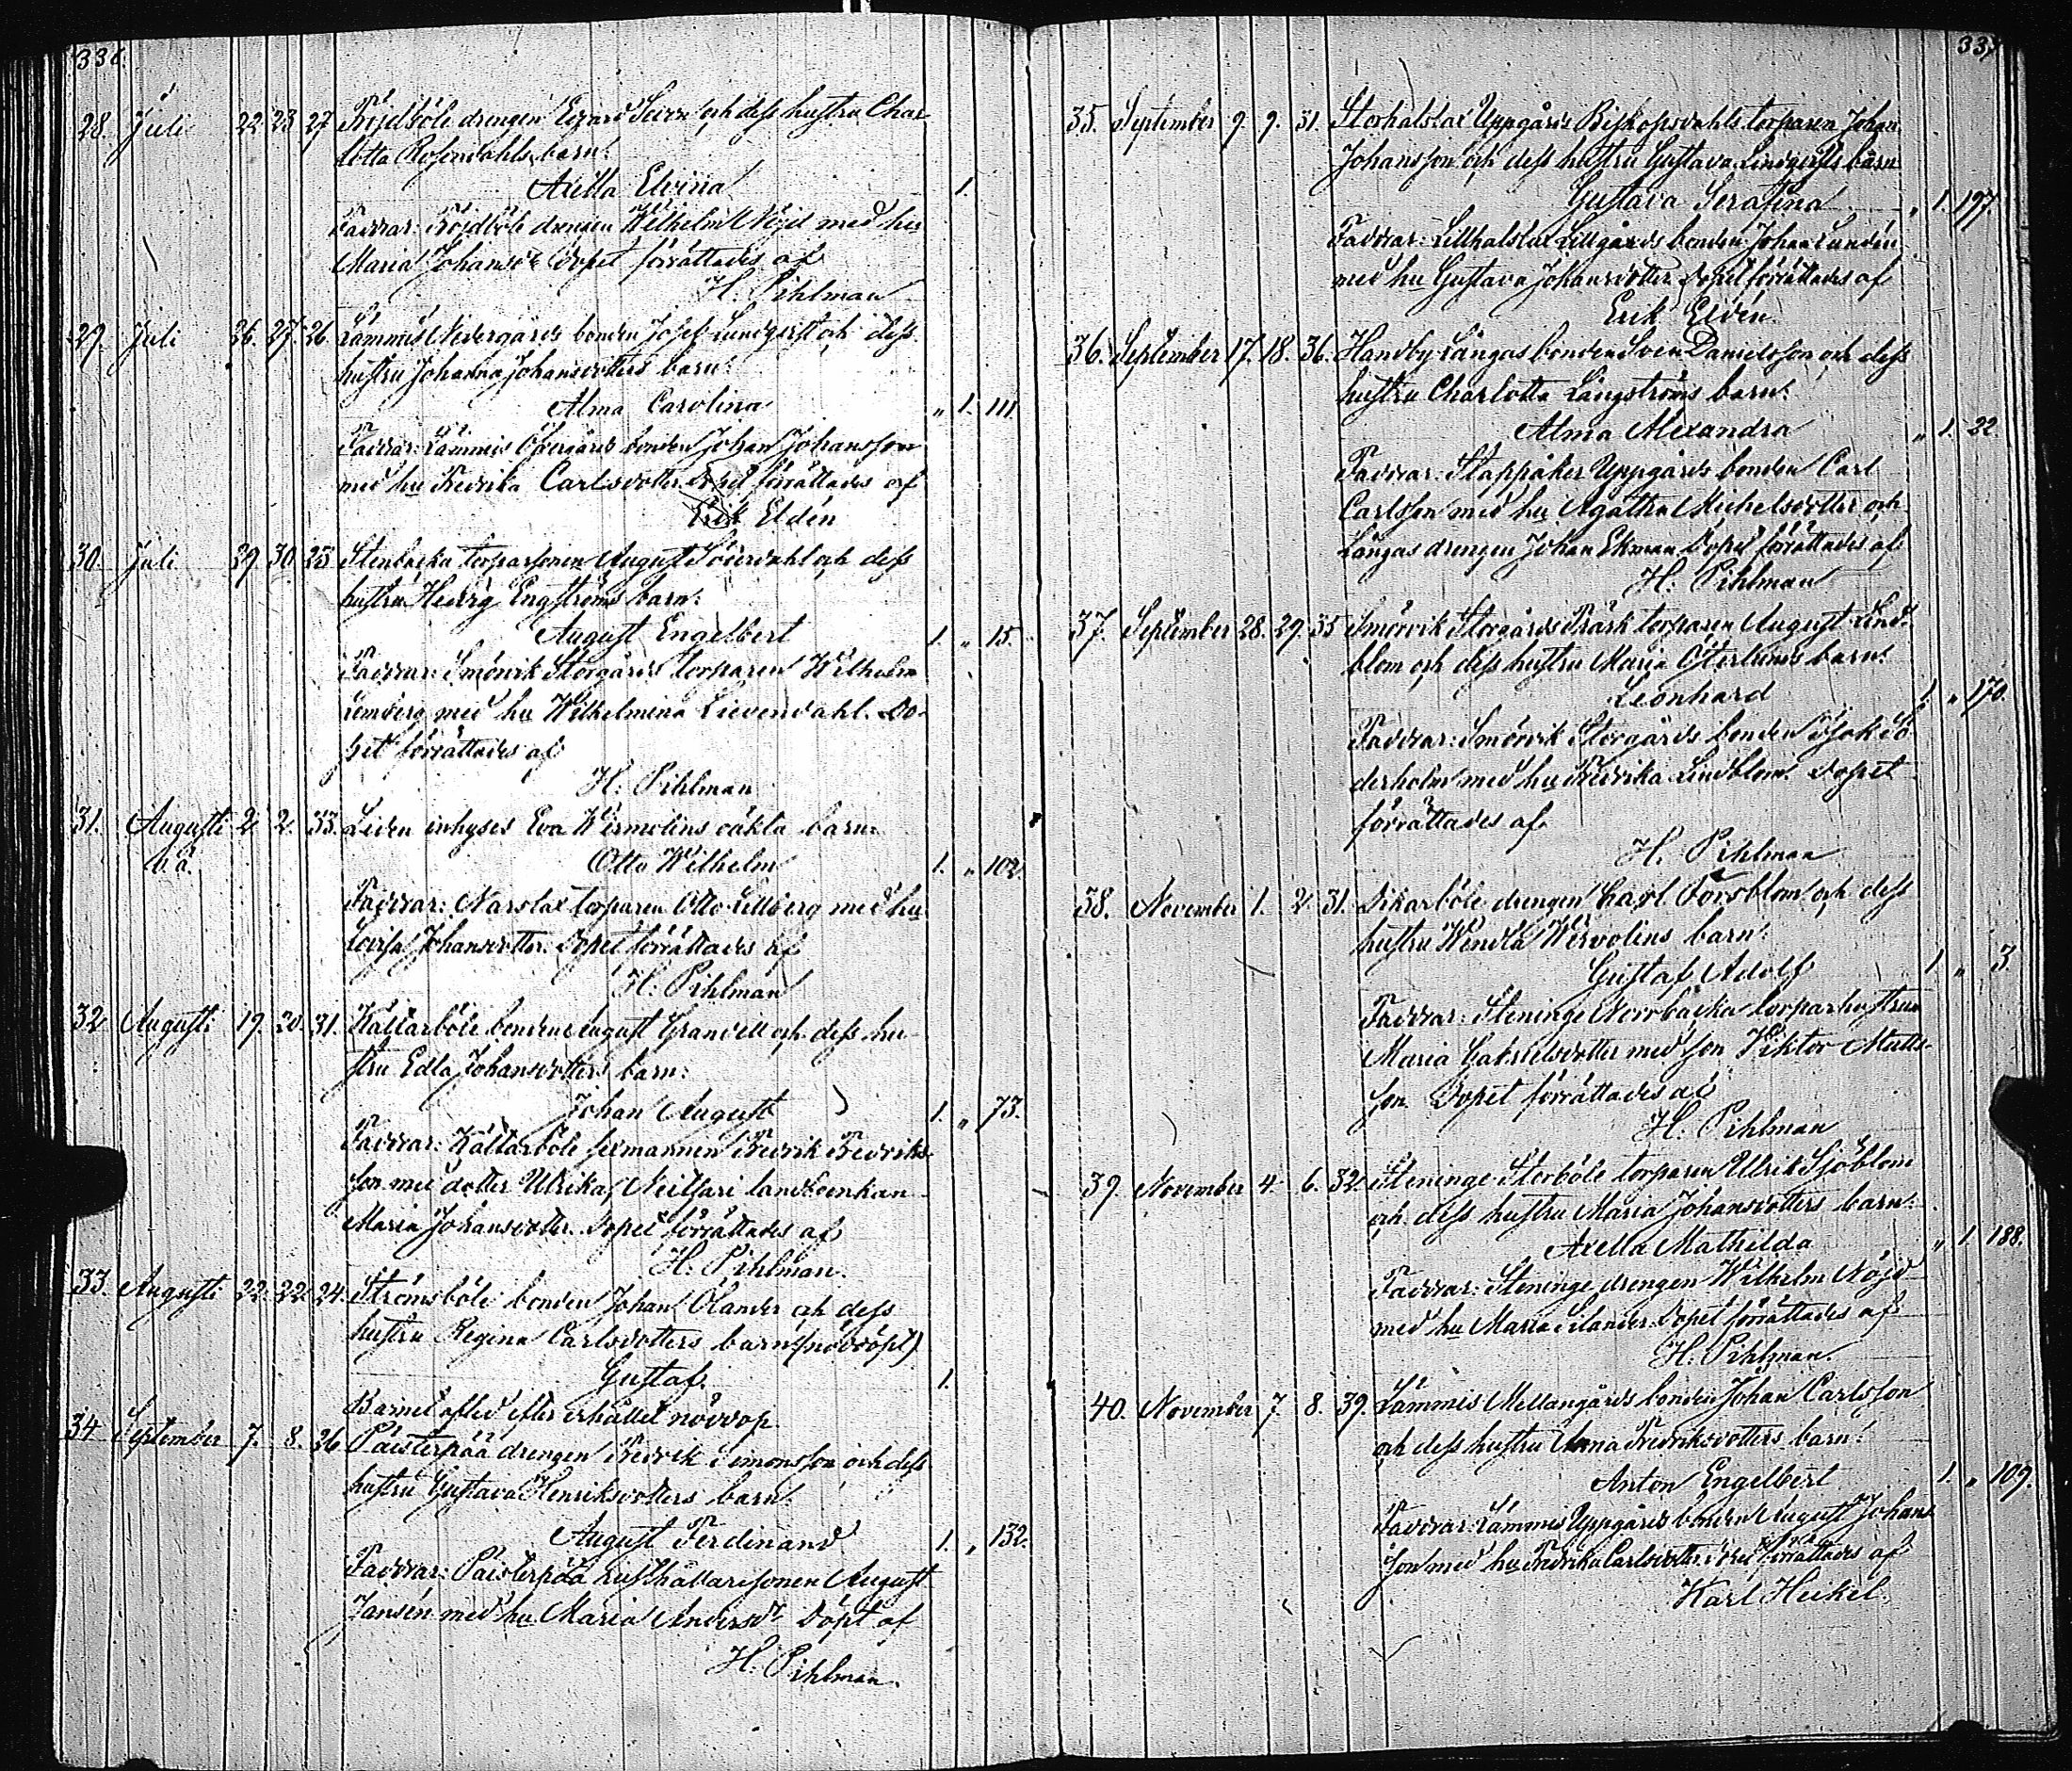 336.
28. Juli 22 23 27 Röjdböle drengen Edvard och dess hustru Char-
lotta Rosendahls barn:
Axella Elvina 1.
Faddrar: Röjdböle drengen Wilhelm Nöjd med hu
Maria Johansdr Dopet förrättades af
H. Pihlman
29. Juli 26. 27. 26. Lammis Nedergårds bonden Josef Lundqvist och dess
hustru Johanna Johansdotters barn:
Alma Carolina „ 1. 111.
Faddrar: Lammis Öfvergårds bonden Johan Johansson
med hu Fredrika Carlsdotter. Dopet förrättades af
Erik Eldén
30. Juli 29. 30. 23 Stenbacka torparsonen August Söderdahl och dess
hustru Hedvig Engströms barn:
August Engelbert 1. „ 15.
Faddrar: Smörvik Storgårds torparen Wilhelm
Lemberg med hu Wilhelmina Lievendahl. Do-
pet förrättades af
H. Pihlman
31. Augusti 2. 2. 33. Leden inhyses Eva Wirmolins oäkta barn:
o.ä. Otto Wilhelm 1. „ 102.
Faddrar: Narslax torparen Otto Lillberg med hu
Lovisa Johansdotter. Dopet förrättades af
H. Pihlman
32 Augusti 19. 20. 31. Källarböle bonden August Granvill och dess hu-
stru Edla Johansdotters barn:
Johan August 1. „ 73.
Faddrar: Källarböle sexmannen Fredrik Fredriks-
son med dotter Ulrika, Neitsari landbonkan
Maria Johansdotter. Dopet förrättades af
H. Pihlman.
33. Augusti 22. 22. 24. Strömsböle bonden Johan Ölander och dess
hustru Regina Carlsdotters barn (nöddöpt)
Gustaf. 1.
Barnet afled efter erhållet nöddop
34 September 7. 8. 26 Päisterpää drengen Fredrik Simonsson och dess
hustru Gustava Henriksdotters barn:
August Ferdinand 1. „ 132.
Faddrar: Päisterpää hushållaresonen August
Jansén med hu Maria Andersdr Döpt af
H. Pihlman.
337
35. September 9. 9. 31. Storhalslax Uppgårds Biskopsdahls torparen Johan
Johansson och dess hustru Gustava Lindqvists barn
Gustava Serafina „ 1. 197.
Faddrar: Lillhalslax Lillgårds bonden Johan Lundén
med hu Gustava Johansdotter Dopet förrättades af
Erik Eldén.
36. September 17. 18. 36. Handby Långas bonden Sven Danielsson och dess
hustru Charlotta Långströms barn:
Alma Alexandra „ 1. 22
Faddrar: Slappåker Uppgårds bonden Carl
Carlsson med hu Agatha Michelsdotter och
Långas drengen Johan Ekman Dopet förrättades af
H. Pihlman
37. September 28. 29. 35 Smörvik Storgårds Träsk torparen August Lind-
blom och dess hustru Maria Österlunds barn:
Leonhard 1. „ 170.
Faddrar: Smörvik Storgårds bonden Isak Sö-
derholm med hu Fredrika Lindblom. Dopet
förrättades af
H. Pihlman
38. November 1. 2 31. Dikarböle drengen Carl Forsblom och dess
hustru Wendla Wirvolins barn:
Gustaf Adolf 1 „ 3.
Faddrar: Steninge Norrbacka torparhustrun
Maria Gabrielsdotter med son Viktor Matts-
son Dopet förrättades af
H. Pihlman
39. November 4. 6. 32. Steninge Storböle torparen Ulrik Sjöblom
och dess hustru Maria Johansdotters barn:
Axella Mathilda „ 1 188.
Faddrar: Steninge drengen Wilhelm Nöjd
med hu Maria Silander. Dopet förrättades af
H. Pihlman.
40. November 7. 8. 39. Lammis Mellangårds bonden Johan Carlsson
och dess hustru Anna Fredriksdotters barn:
Anton Engelbert 1. „ 109.
Faddrar: Lammis Uppgårds bonden August Johans-
son med hu Fredrika Carlsdotter Dopet förrättades af
Karl Heikel.